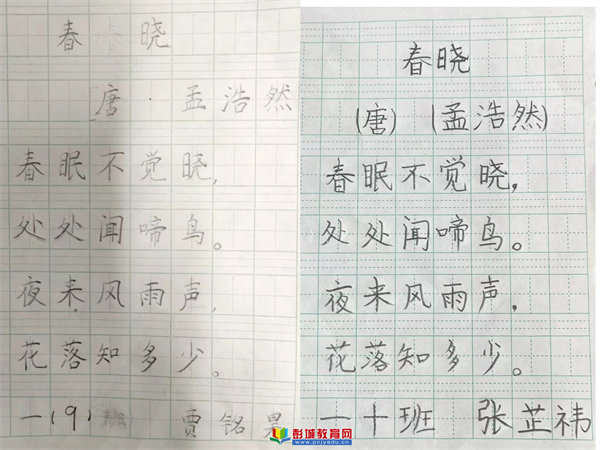 春晓
唐·孟浩然
春眠不觉晓，
处处闻啼鸟。
夜来风雨声，
花落知多少。
一(9)班 贾铭昊
春晓
(唐) (孟浩然)
春眠不觉晓，
处处闻啼鸟。
夜来风雨声，
花落知多少。
一十班 张芷祎
彭城教育网
www.pcjyedu.cn